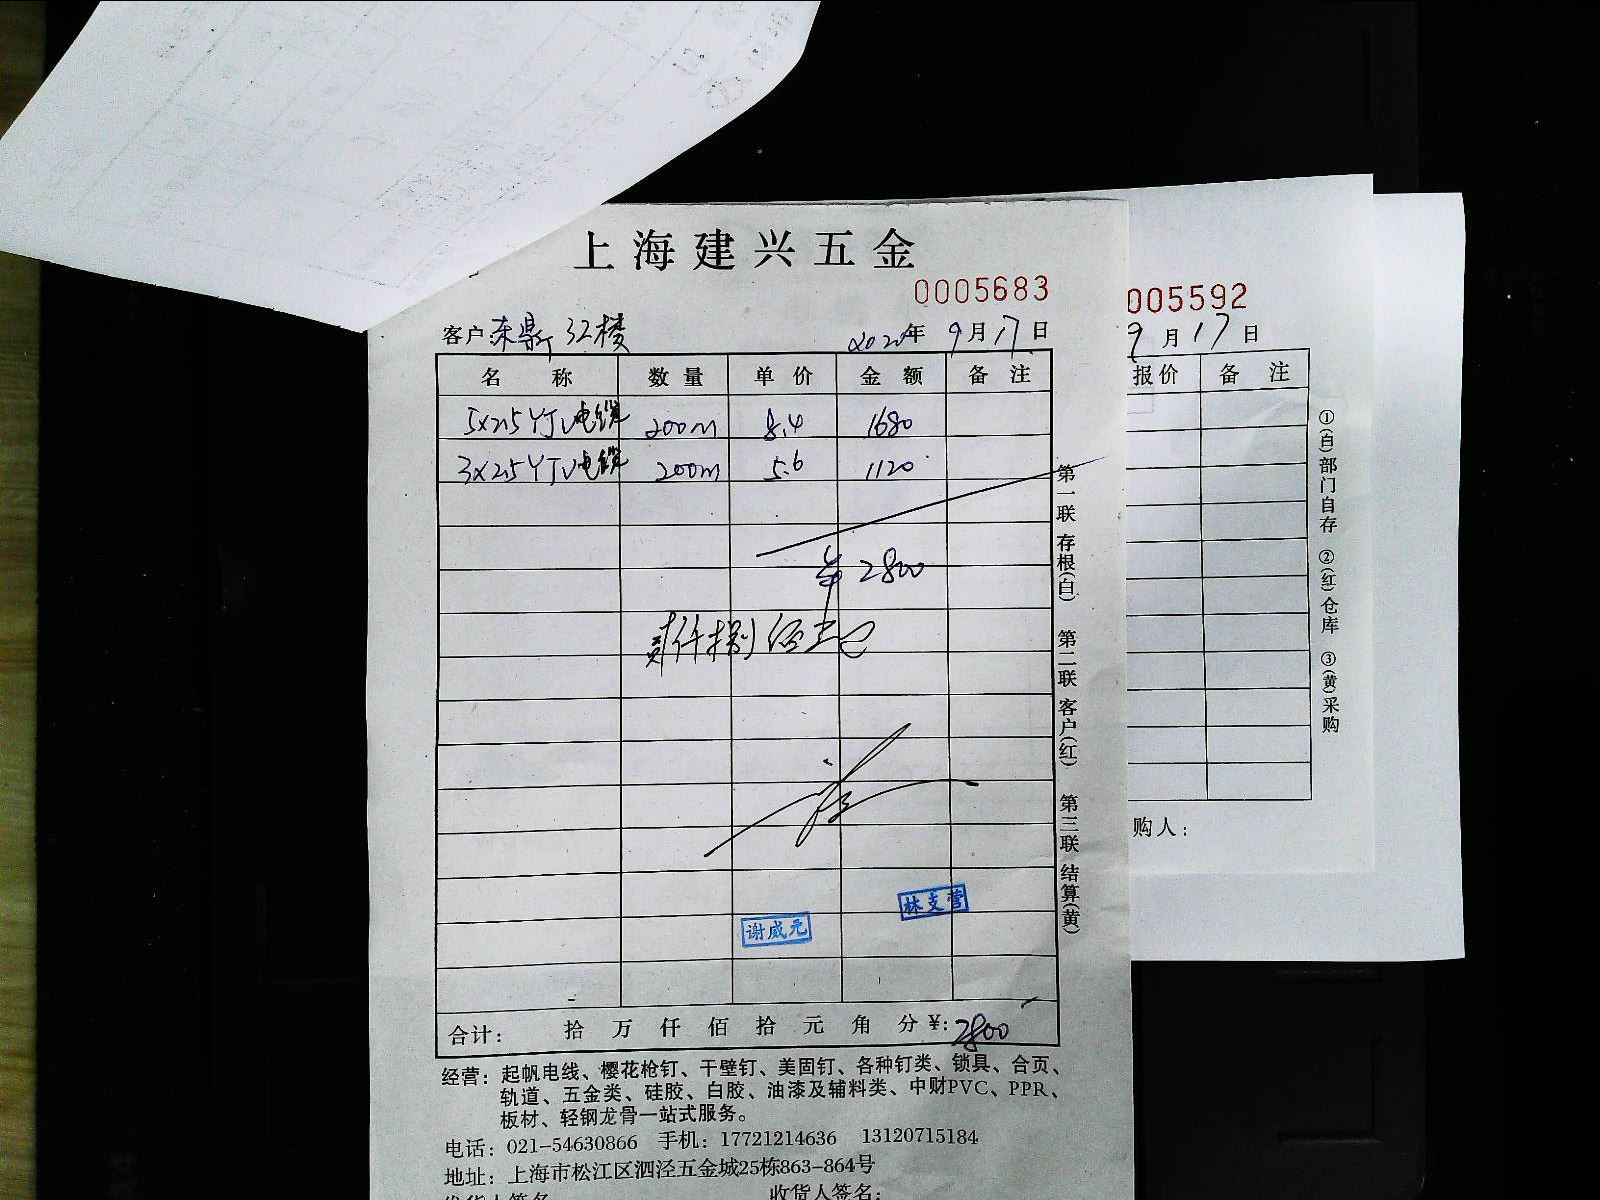 上海建兴五金
0005683
客户:东鼎 32楼 2020年 9月17日
名 称 数 量 单 价 金 额 备 注
5x2.5 YJV电缆 200m 8.4 1680
3x2.5 YJV电缆 200m 5.6 1120
2800
贰仟捌佰
谢威元
林支营
合计: 拾 万 仟 佰 拾 元 角 分 ¥:2800
经营:起帆电线、樱花枪钉、干壁钉、美固钉、各种钉类、锁具、合页、
轨道、五金类、硅胶、白胶、油漆及辅料类、中财PVC、PPR、
板材、轻钢龙骨一站式服务。
电话:021-54630866 手机:17721214636 13120715184
地址:上海市松江区泗泾五金城25栋863-864号
收货人签名:
第一联 存根(白) 第二联 客户(红) 第三联 结算(黄)
005592
9月17日
报价 备 注
购人:
①(白)部门自存 ②(红)仓库 ③(黄)采购